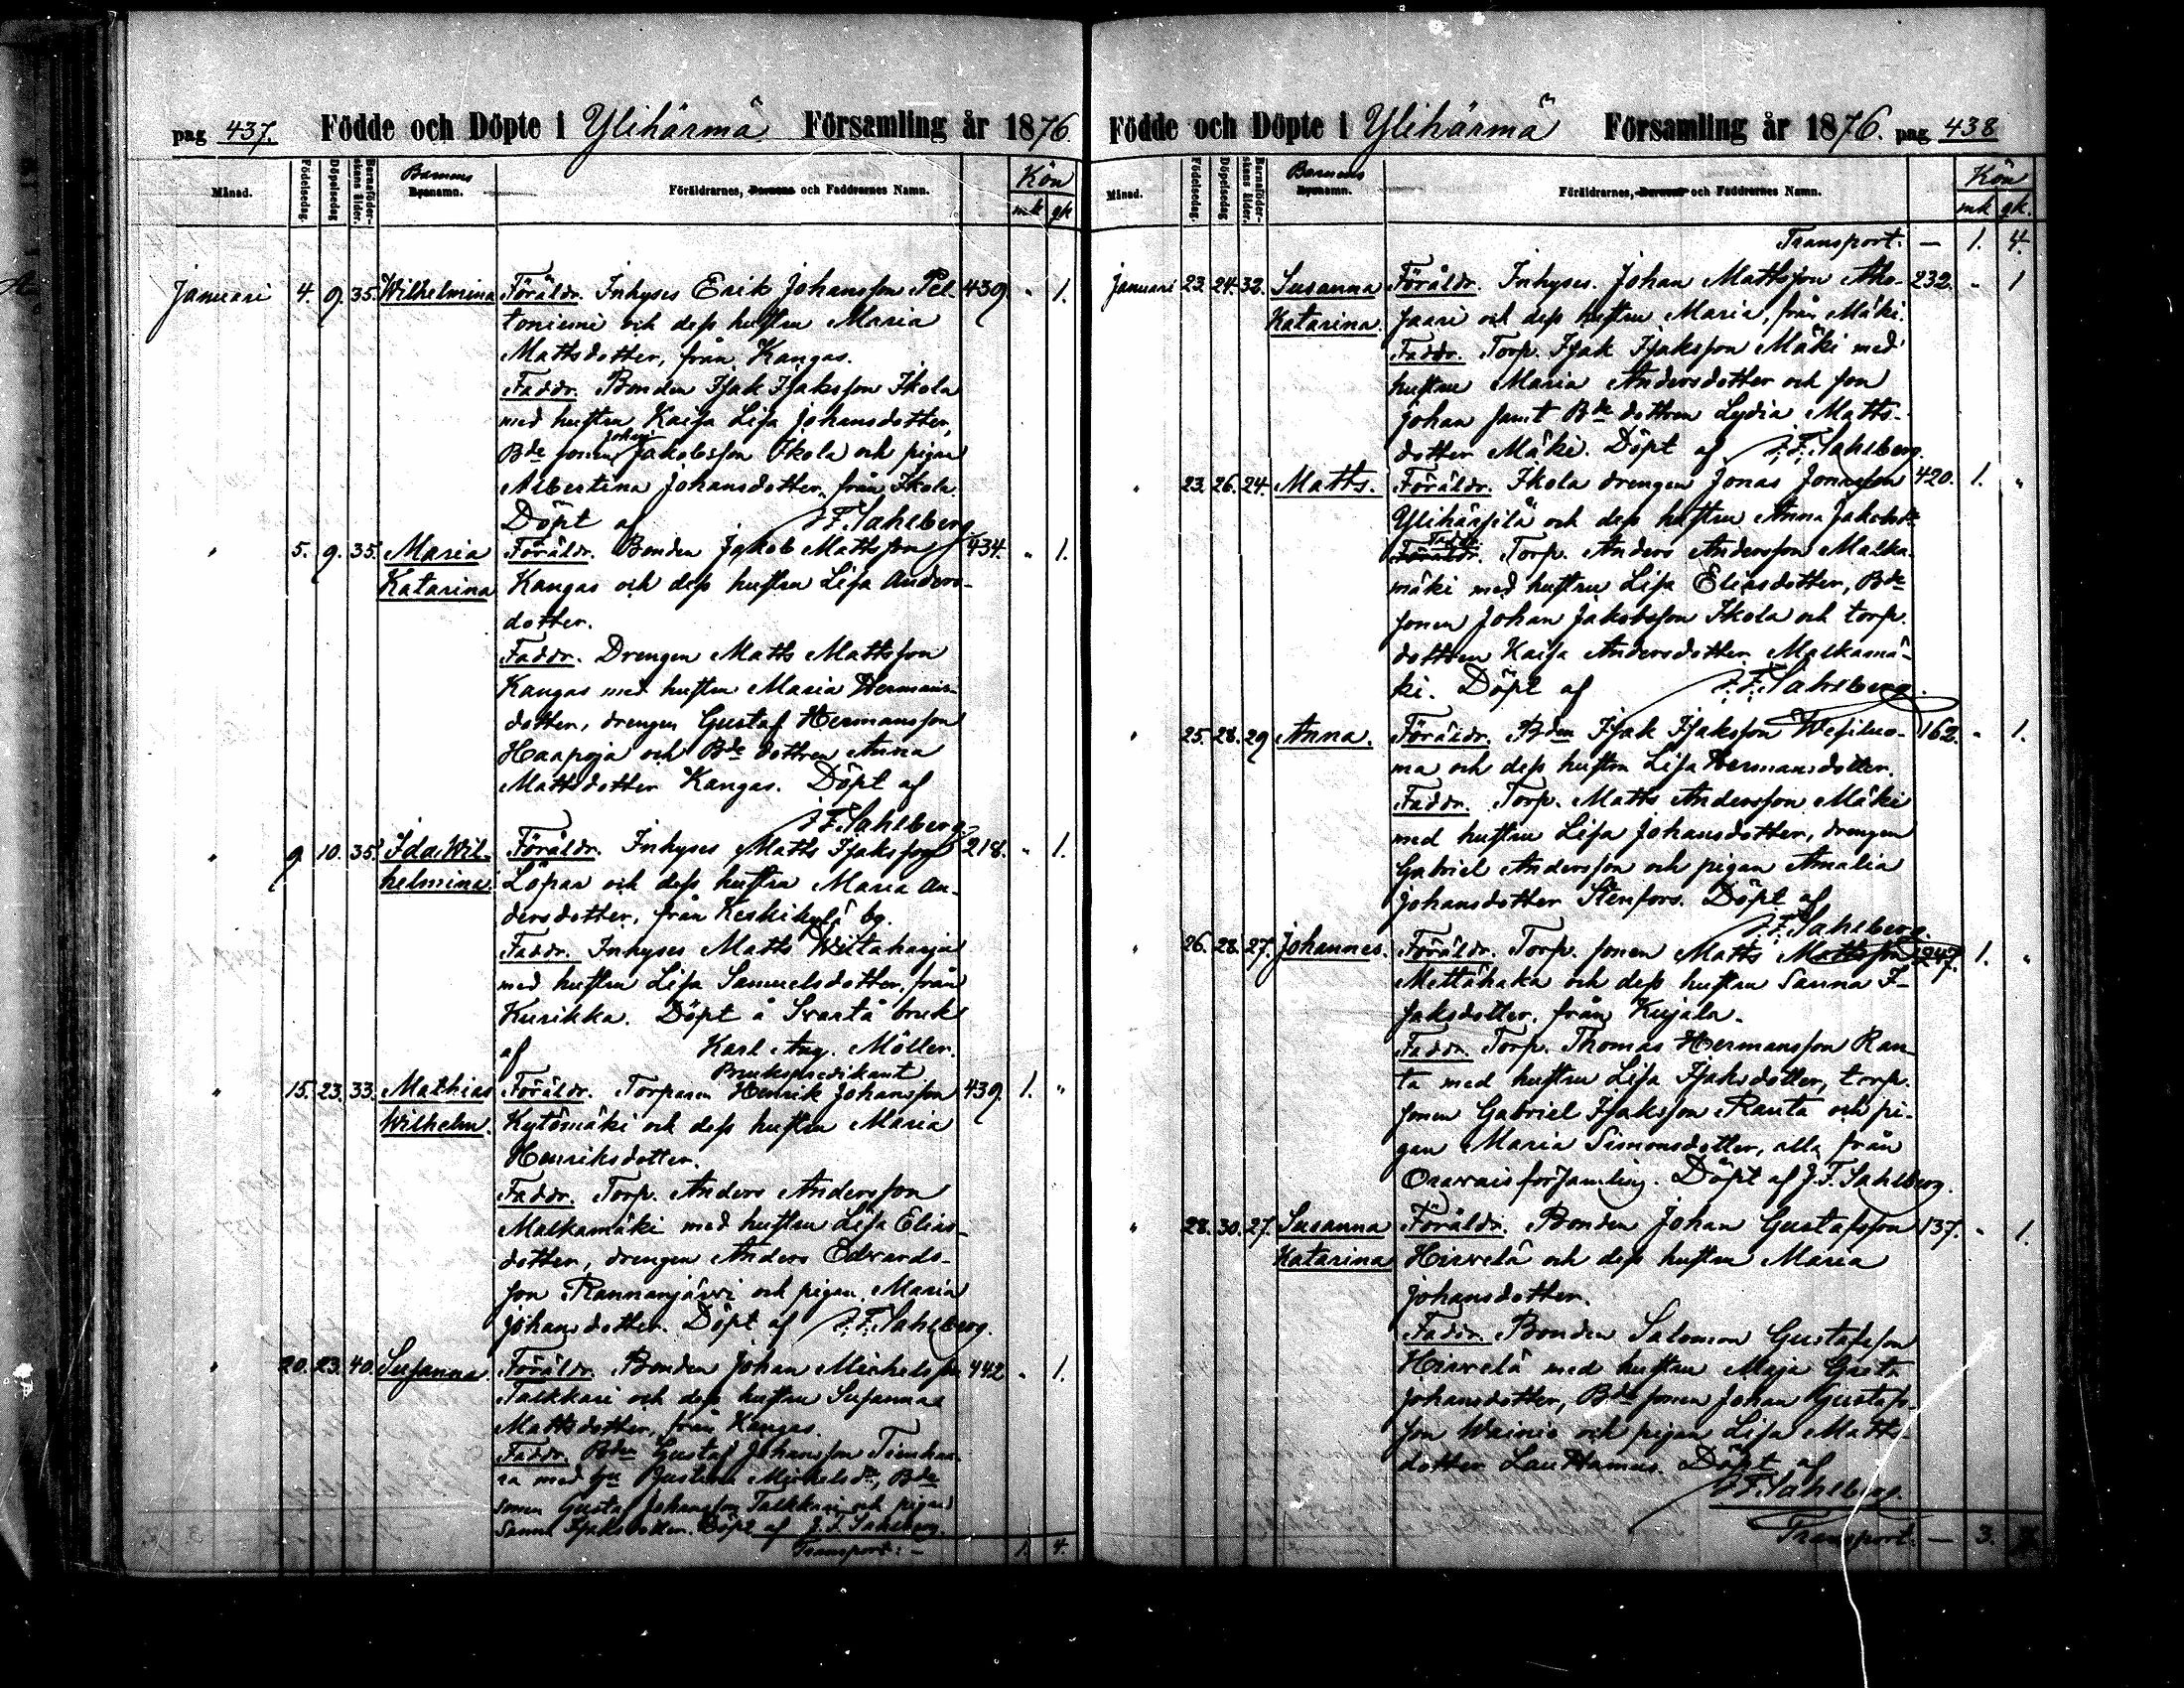 pag 437. Födde och Döpte i Ylihärmä Församling år 1876.
Månad. Födelsedag. Döpelsedag Barnaföderskans ålder. Barnens Bynamn. Föräldrarnes, Barnens och Faddrarnes Namn. Kön
mk gk
Januari 4. 9. 35. Wilhelmina Föräldr. Inhyses Erik Johansson Pel- 439 " 1.
toniemi och dess hustru Maria
Mattsdotter, från Kangas.
Faddr. Bonden Isak Isaksson Ikola
med hustru Kaisa Lisa Johansdotter,
Bde sonen Johan Jakobsson Ikola och pigan
Albertina Johansdotter, från Ikola.
Döpt af J. F. Sahlberg
" 5. 9. 35. Maria Föräldr. Bonden Jakob Mattsson 434. " 1.
Katarina Kangas och dess hustru Lisa Anders-
dotter.
Faddr. Drengen Matts Mattsson
Kangas med hustru Maria Hermans-
dotter, drengen Gustaf Hermansson
Haapoja och Bde dottren Anna
Mattsdotter Kangas. Döpt af
J. F. Sahlberg
" 9. 10. 35. Ida Wil- Föräldr. Inhyses Matts Isaksson 218. " 1.
helmina Löpar och dess hustru Maria An-
dersdotter, från Keskikylä by.
Faddr. Inhyses Matts Wiitaharja
med hustru Lisa Samuelsdotter, från
Kurikka. Döpt å Svartå bruk
af Karl Aug. Möller.
Brukspredikant
" 15. 23. 33. Mathias Föräldr. Torparen Henrik Johansson 439. 1. "
Wilhelm. Kytömäki och dess hustru Maria
Henriksdotter.
Faddr. Torp. Anders Andersson
Malkamäki med hustru Lisa Elias-
dotter, drengen Anders Edvards-
son Rannanjärvi och pigan Maria
Johansdotter. Döpt af J. F. Sahlberg.
" 20. 23. 40. Susanna Föräldr. Bonden Johan Michelsson 442 " 1.
Talkkari och dess hustru Susanna
Mattsdotter, från Kangas.
Faddr. Bden Gustaf Johansson
ra med Justina Michelsdr, Bde
sonen Gustaf Johansson Talkkari och pigan
Sanna Isaksdotter. Döpt af J. F. Sahlberg.
Transport: - 1. 4.
Födde och Döpte i Ylihärmä Församling år 1876. pag 438
Månad. Födelsedag. Döpelsedag Barnaföderskans ålder. Barnens Bynamn. Föräldrarnes, Barnens och Faddrarnes Namn. Kön
mk. gk.
Transport. — 1. 4.
Januari 23. 24. 32. Susanna Föräldr. Inhyses. Johan Mattsson Aho- 232. " 1
Katarina. saari och dess hustru Maria, från Mäki.
Faddr. Torp. Isak Isaksson Mäki med
hustru Maria Andersdotter och son
Johan samt Bde dottren Lydia Matts-
dotter Mäki. Döpt af J. F. Sahlberg.
" 23. 26. 24. Matts. Föräldr. Ikola drengen Jonas Jonasson 420. 1. "
Ylihärsilä och dess hustru Anna Jakobsdr
Föräldr. Faddr. Torp. Anders Andersson Malka-
mäki med hustru Lisa Eliasdotter, Bde
sonen Johan Jakobsson Ikola och torp.
dottren Kaisa Andersdotter Malkamä-
ki. Döpt af J. F. Sahlberg.
" 25. 28. 29 Anna. Föräldr. Bden Isak Isaksson Wesiluo- 162. " 1.
ma och dess hustru Lisa Hermansdotter.
Faddr. Torp. Matts Andersson Mäki
med hustru Lisa Johansdotter, drengen
Gabriel Andersson och pigan Amalia
Johansdotter Stenfors. Döpt af
J. F. Sahlberg.
" 26. 28. 27. Johannes. Föräldr. Torp. sonen Matts Mattsson 247. 1. "
Mettähaka och dess hustru Sanna I-
saksdotter, från Kujala.
Faddr. Torp. Thomas Hermansson Ran-
ta med hustru Lisa Isaksdotter, torp.
sonen Gabriel Isaksson Ranta och pi-
gan Maria Simonsdotter, alla från
Oravais församling. Döpt af J. F. Sahlberg.
" 28. 30. 27. Susanna Föräldr. Bonden Johan Gustafsson 137. " 1.
Katarina Hirvelä och dess hustru Maria
Johansdotter.
Faddr. Bonden Salomon Gustafsson
Hirvelä med hustru Maja Greta
Johansdotter, Bde sonen Johan Gustafs-
son Wainio och pigan Lisa Matts-
dotter Lauttamus. Döpt af
J. F. Sahlberg.
Transport. — 3.